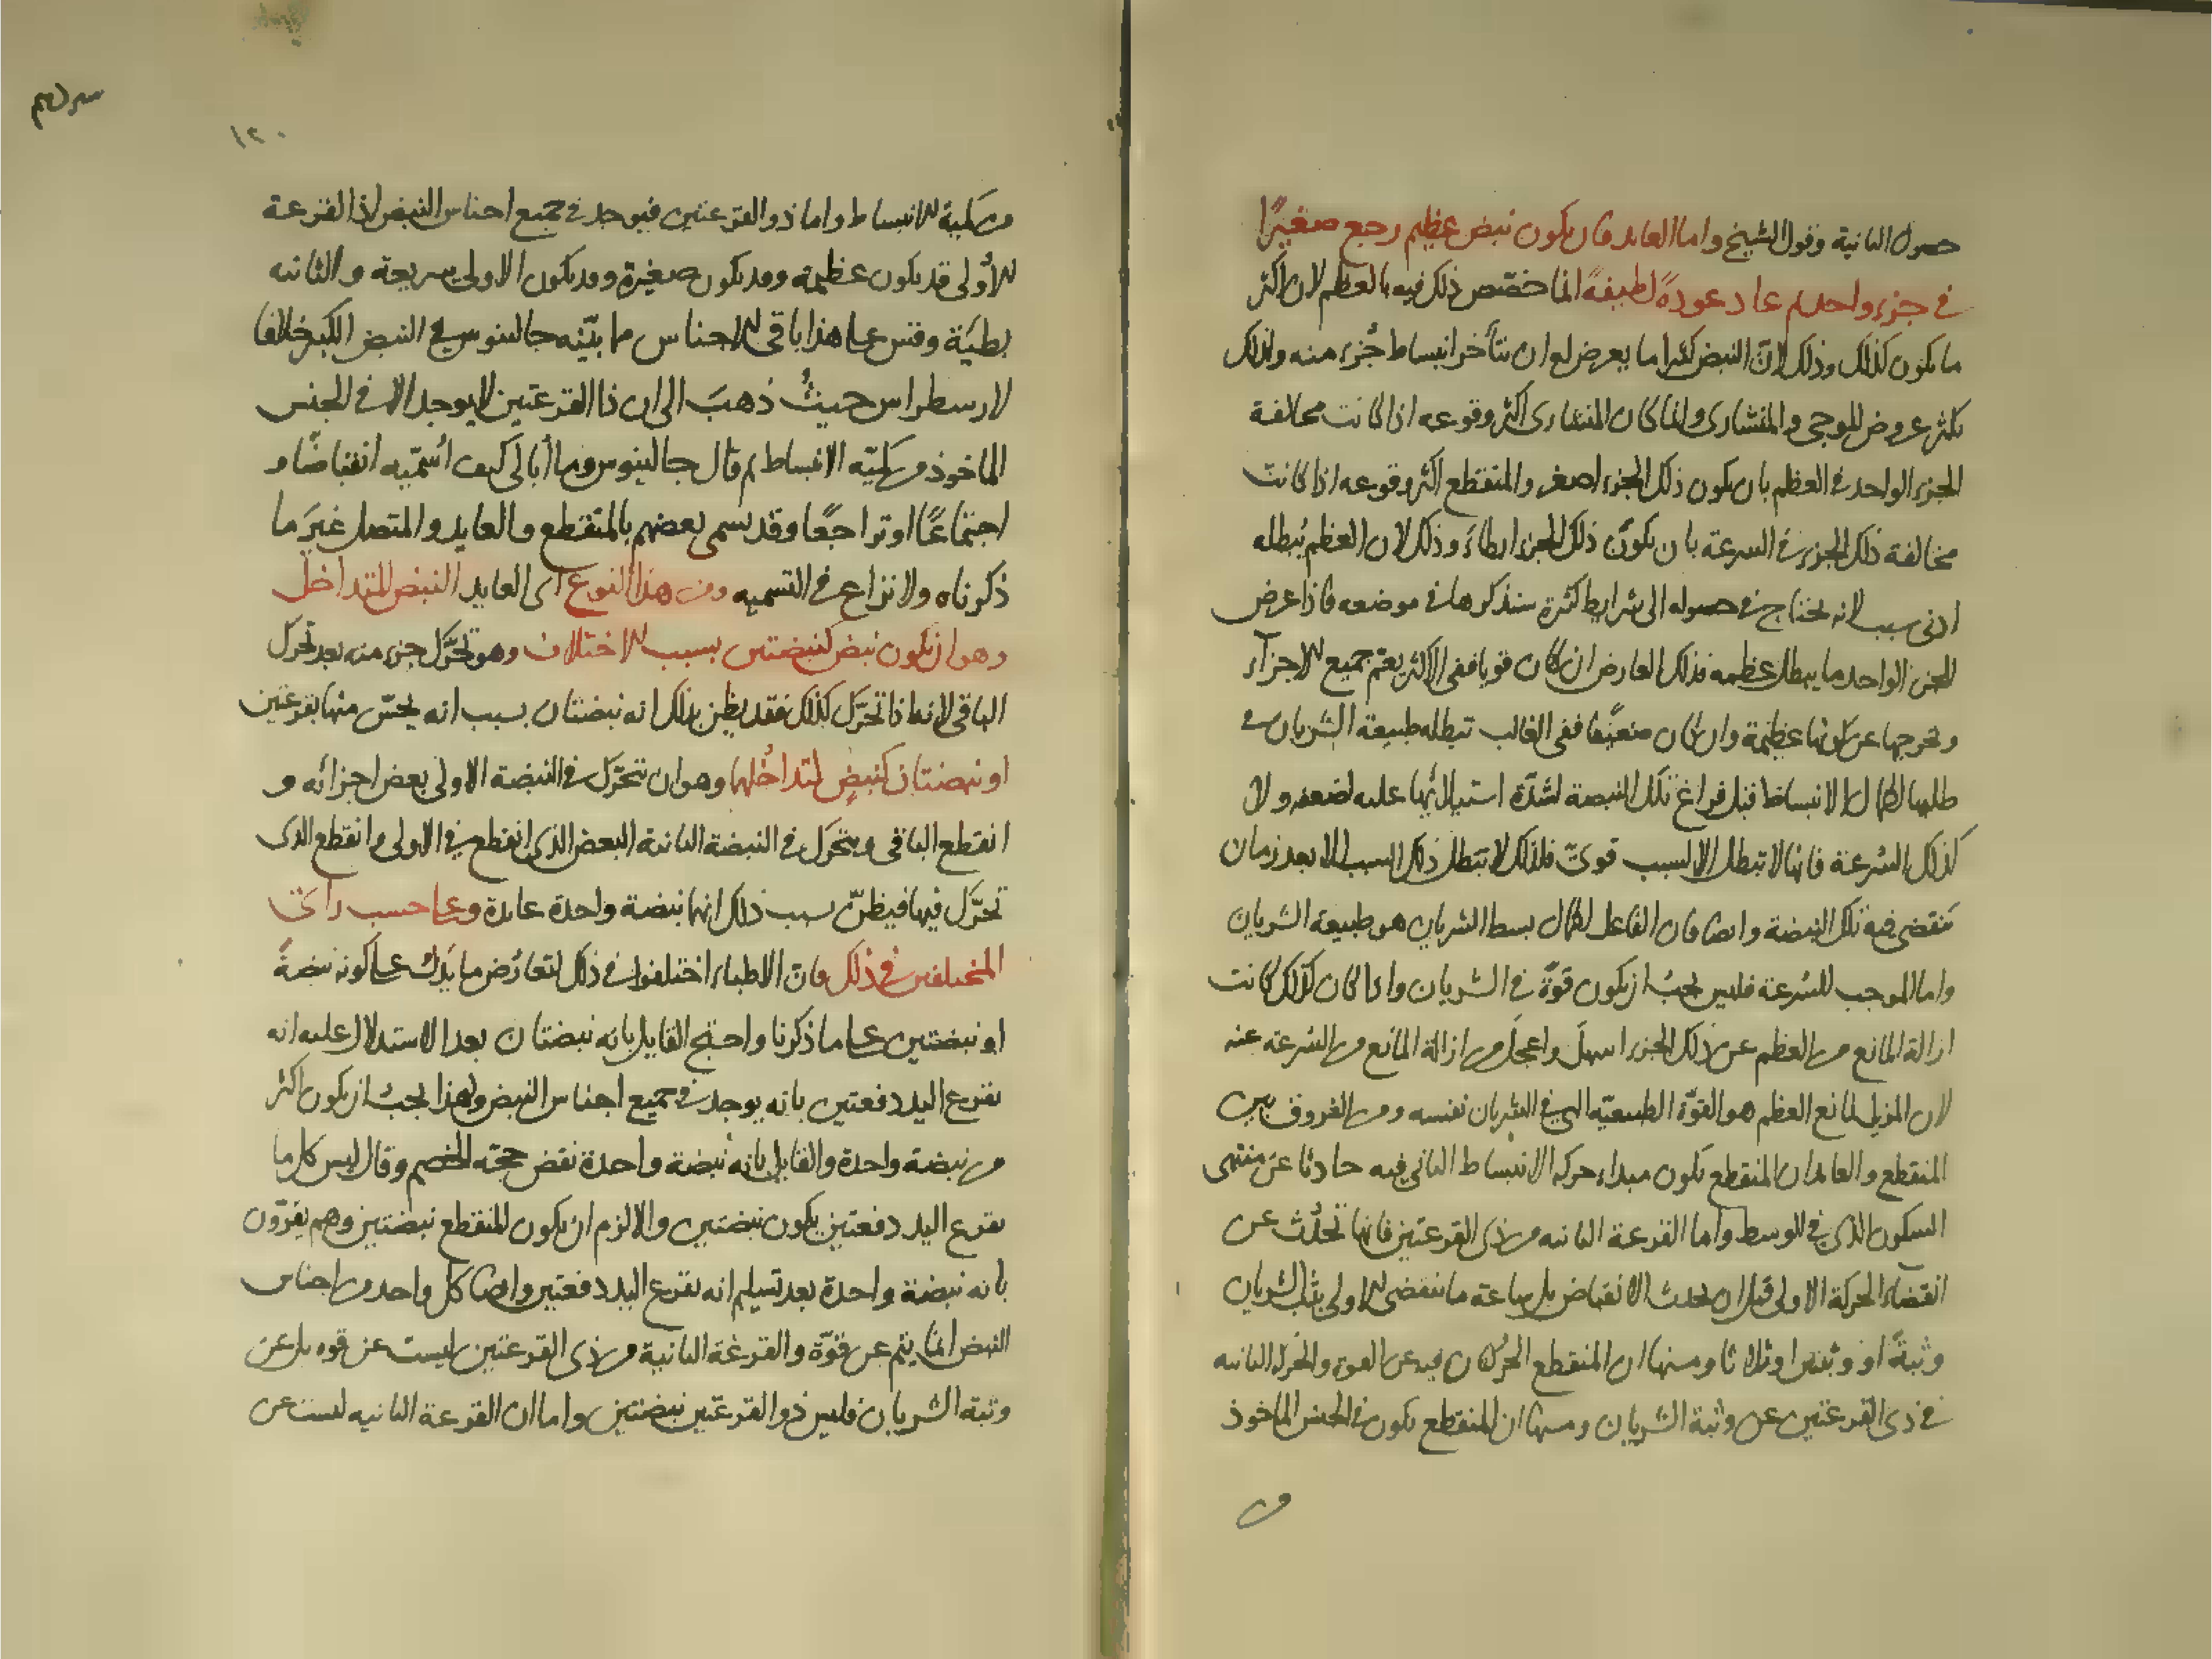 حصول الثانية وقول الشيخ واما العايد فان يكون نبض عظيم رجع صغيرًا
في جزء واحد ثم عاد عودةً لطيفةً انما خصّص ذلك فيه بالعظم لان اكثر
ما يكون كذلك وذلك لانّ النبض كثيرا ما يعرض له ان يتأخر انبساط جُزء منه ولذلك
يكثر عروض الموجى والمنشارى وانما كان المنشارى اكثر وقوعه اذا كانت مخالفة
الجزء الواحد في العظم بان يكون ذلك الجزء اصغر والمنقطع اكثر وقوعه اذا كانت
مخالفة ذلك الجزء في السرعة بان يكون ذلك الجزء ابطاء وذلك لان العظم يُبطله
ادنى سبب لانه يحتاج في حصوله الى شرايط كثيرة سنذكرها في موضعه فاذا عرض
للجزء الواحد ما يبطل عظمه فذلك العارض ان كان قويا ففى الاكثر يعم جميع الاجزاء
ويخرجها عن كونها عظيمة وان كان ضعيفا ففى الغالب تبطله طبيعة الشريان في
طلبها لكمال الانبساط قبل فراغ تلك النبضة لشدّة استيلائها عليه لضعفه ولا
كذلك السرعة فانها لا تبطل الا لسبب قوىّ فلذلك لا تبطل ذلك السبب الا بعد زمان
تنقضى فيه تلك النبضة وايضا فان الفاعل لكمال بسط الشريان هو طبيعة الشريان
واما الموجب للسّرعة فليس يجبُ ان يكون قوّة في الشريان واذا كان كذلك كانت
ازالة المانع من العظم عن ذلك الجزء اسهل واعجل من ازالة المانع من السّرعة عنه
لان المزيل لمانع العظم هو القوّة الطبيعيّة التي في الشريان نفسه ومن الفروق بين
المنقطع والعايد ان المنقطع يكون مبداء حركة الانبساط الثاني فيه حادثا عن منتهى
السكون الذى في الوسط واما القرعة الثانيه من ذى القرعتين فانها تحدُث عن
انقضاء الحركة الاولى قبل ان يحدث الانقباض بل ساعة ما تنقضى الاولى يثب الشريان
وثبةً او وثبتين او ثلاثا ومنها ان المنقطع الحركتان فيه عن القوة والحركة الثانيه
في ذى القرعتين عن وثبة الشريان ومنها ان المنقطع يكون في الجنس الماخوذ
من
سردهم
١٢٠
من كمية الانبساط واما ذو القرعتين فيوجد في جميع اجناس النبض اذ القرعة
الأولى قد يكون عظيمة وقد يكون صغيرة وقد يكون الاولى سريعة والثانيه
بطيئة وقس على هذا باقى الاجناس ما بيّنه جالينوس في النبض الكبير خلافا
لارسطراس حيثُ ذهبَ الى ان ذا القرعتين لا يوجد الا في الجنس
الماخوذ من كميّة الانبساط ثم قال جالينوس وما أبالى كيف اُسمّيه انقباضًا و
اجتماعًا او تراجعًا وقد يسمى بعضهم بالمنقطع والعايد والمتصل غيرَ ما
ذكرناه ولا نزاع في التسميه ومن هذا النوع اى العايد النبض المتداخل
وهو ان يكون نبض كنبضتين بسبب الاختلاف وهو تحرّك جزء منه بعد تحرك
الباقى لانه اذا تحرّك كذلك فقد يظن بذلك انه نبضتان بسبب انه يحسّ منها بقرعتين
او نبضتان كنبضٍ لتداخُلها وهو ان تتحرّك في النبضة الاولى بعض اجزائه و
انقطع الباقى ويتحرّك في النبضة الثانية البعض الذى انقطع في الاولى وانقطع الذى
تحرّك فيها فيظنّ بسبب ذلك انهما نبضة واحدة عايدة وعلى حسب رأى
المختلفين في ذلك فان الاطباء اختلفوا في ذلك لتعارُض ما يَدلّ على كونه نبضةً
او نبضتين على ما ذكرنا واحتج القايل بانه نبضتان بعد الاستدلال عليه انه
يقرع اليد دفعتين بانه يوجد في جميع اجناس النبض ولهذا يجبُ ان يكون اكثر
من نبضة واحدة والقايل بانه نبضة واحدة نقض حجة الخصم وقال ليس كل ما
يقرع اليد دفعتين يكون نبضتين والا لزم ان يكون المنقطع نبضتين وهم يقرّون
بانه نبضة واحدة بعد تسليم انه يقرع اليد دفعتين وايضا كل واحد من اجناس
النبض انما يتم عن قوّة والقرعة الثانية من ذى القرعتين ليست عن قوه بل عن
وثبة الشريان فليس ذو القرعتين نبضتين واما ان القرعة الثانيه ليست عن